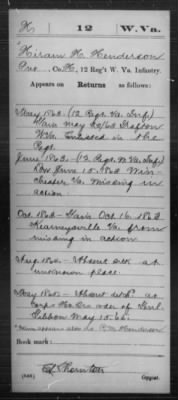 H | 12 | W. Va.
Hiram H. Henderson
Pvt., Co. H, 12 Reg't W. Va. Infantry.
Appears on Returns as follows:
May 1863 (12 Regt Va. Inf.)
Gain May 20/63 Grafton
W Va. Enlisted in the
Regt.
June 1863 (12 Regt W Va Inf)
Loss June 15. 1863 Win-
chester Va. Missing in
action
Oct. 1863 Gain Oct 16. 1863
Kearneysville Va. from
missing in action
Aug. 1864 Absent sick at
unknown place.
May 1865 Absent detch. at
Corps Hd. Qrs order of Genl.
Gibbon May 15. 65.
Name appears also as Henderson
Book mark:
(546)
Copyist.